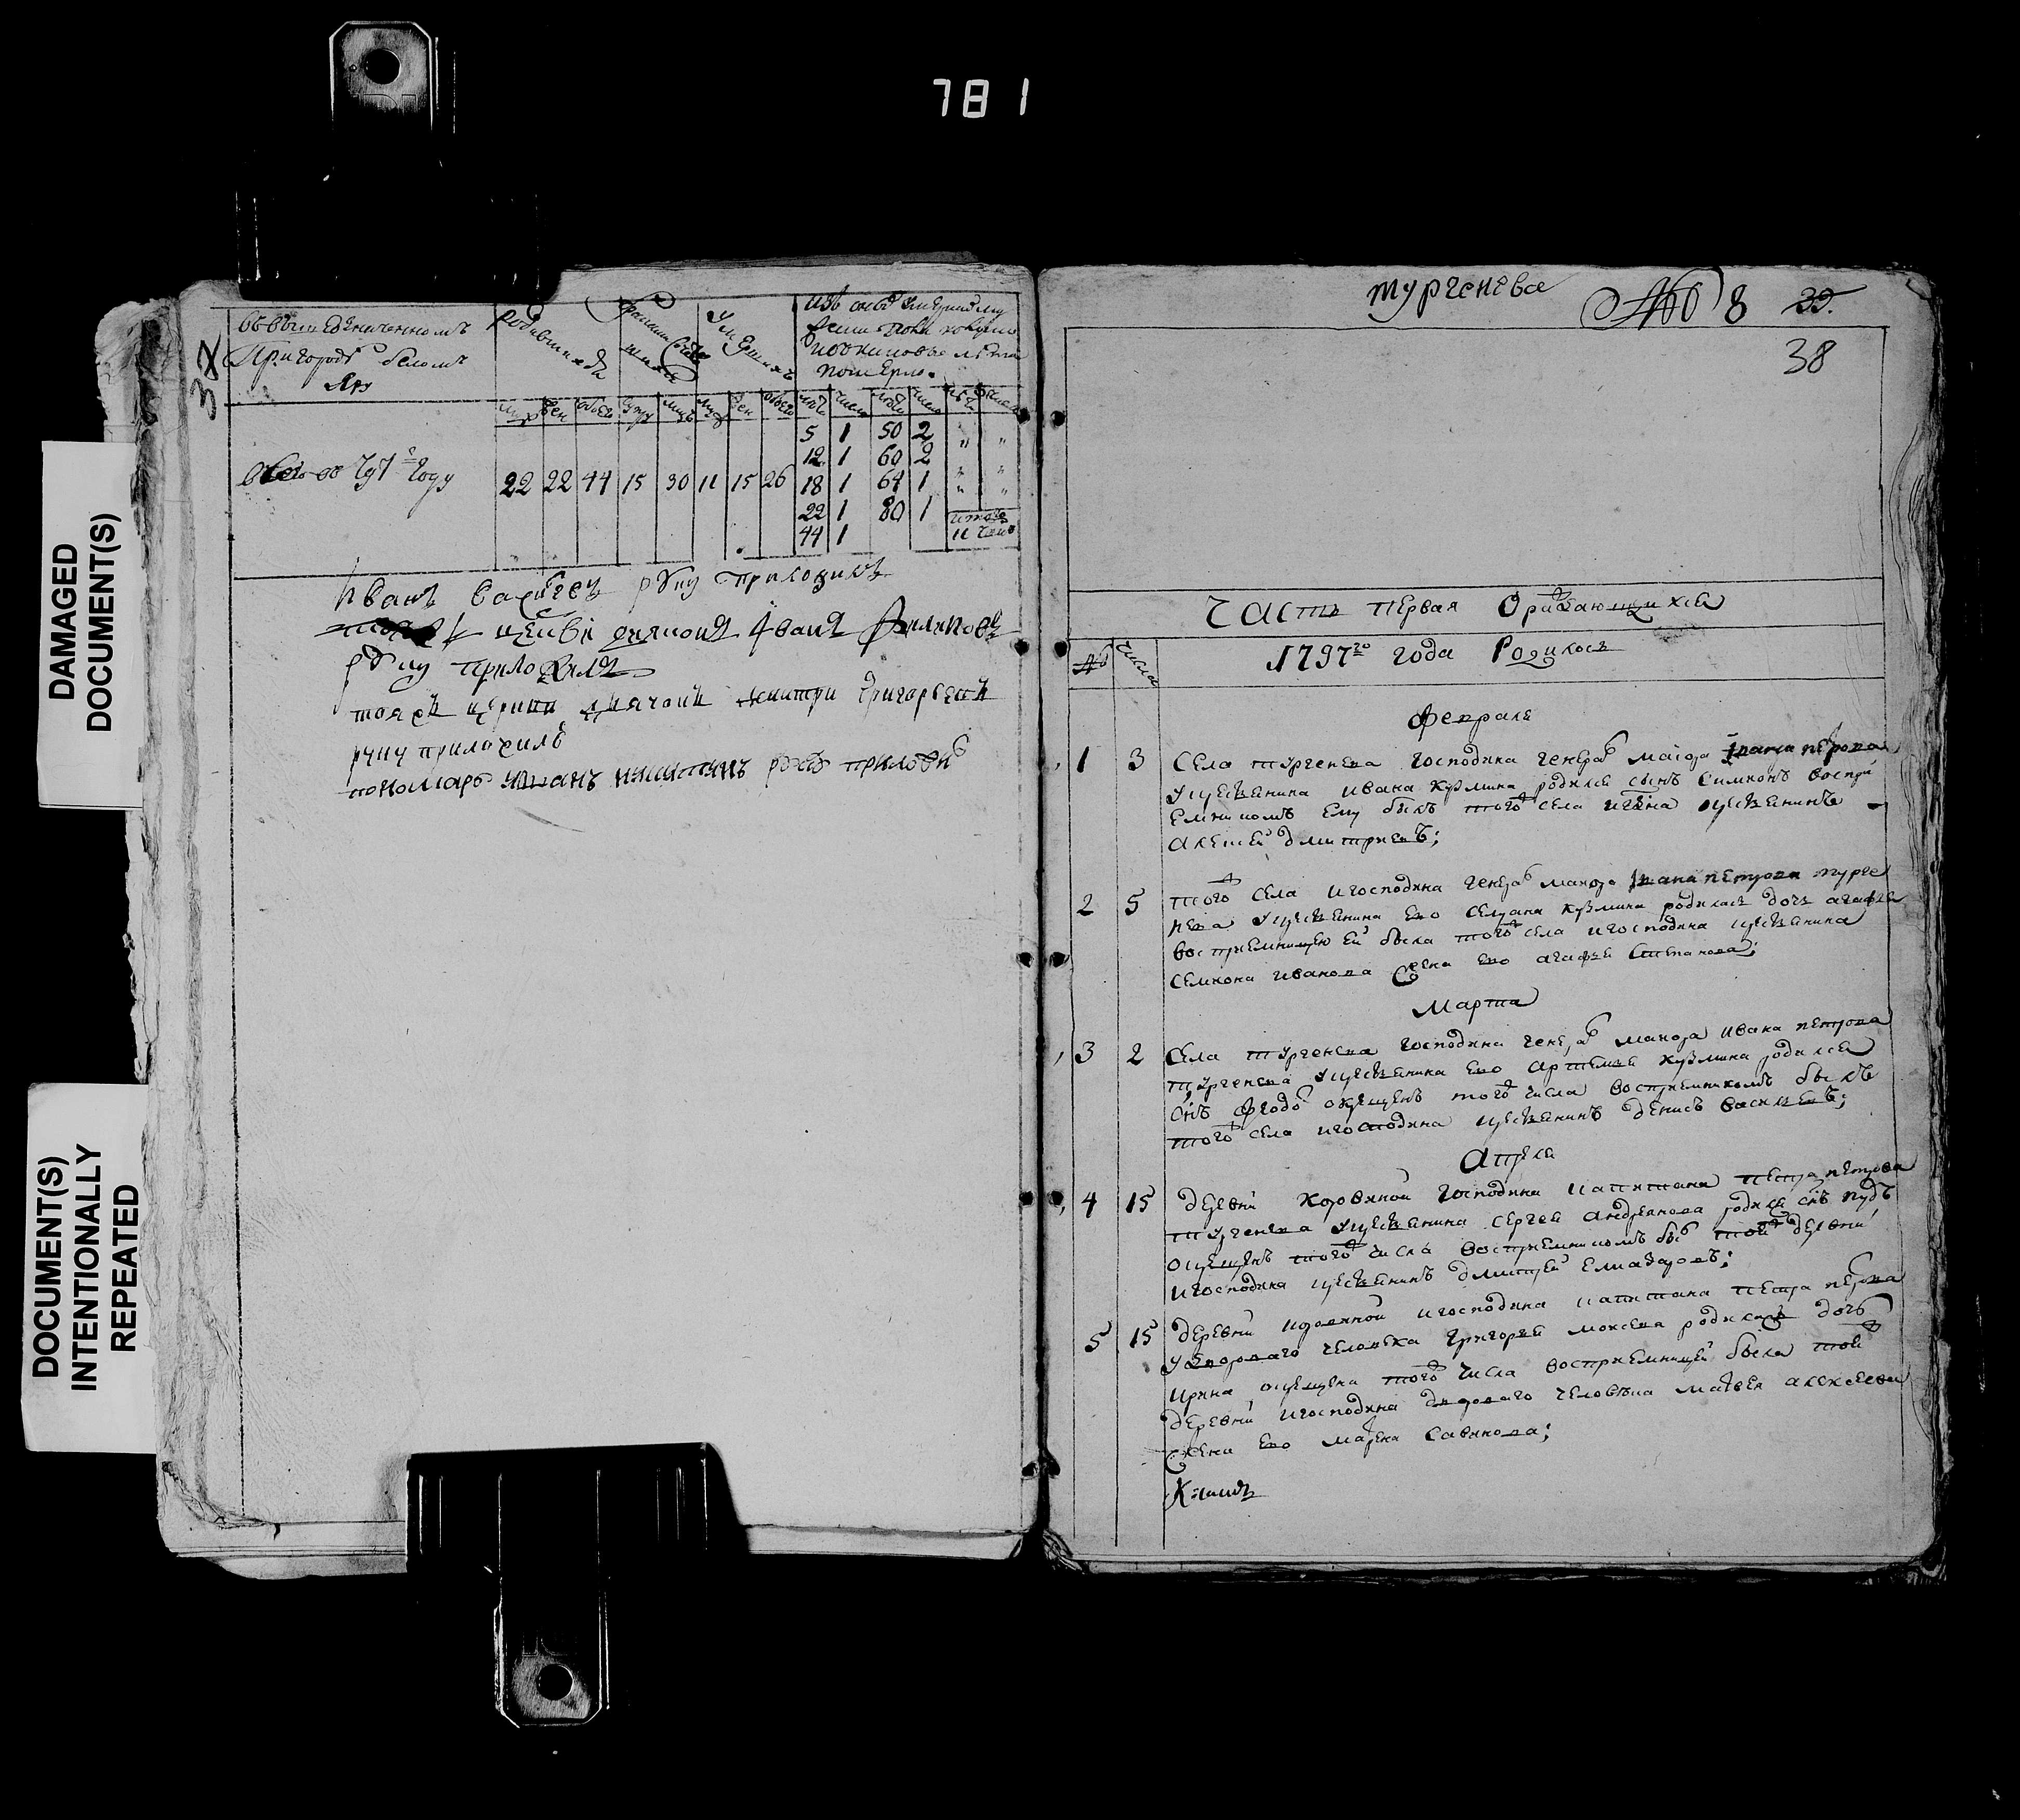 781
DAMAGED
DOCUMENT(S)
DOCUMENT(S)
INTENTIONALLY
REPEATED
37
Пригородѣ беломъ
Яру
родившихся
Умершихъ
году
22 22 44 15 30 11 15 26
5 1 50 2
12 1 60 2
18 1 64 1
22 1 80 1
44 1
Иванъ руку приложилъ
Иванъ Филиповъ
руку приложилъ
тояжъ церкви дьячокъ дмитри григорьевъ
руку приложилъ
пономарь иванъ никитинъ приложи
тургенева
№ 8 39.
38
часть первая О раждающихся
№ числа
1797го года Родилось
февраля
1 3 Села тургенева господина генерал маиора Ивана петрова
у крестьянина ивана кузмина родился сынъ Симионъ воспри
емникомъ ему былъ тогож села крестьянинъ
алексей дмитриевъ;
2 5 тогож села игосподина генерал маиора Ивана петрова турге
нева у крестьянина ево кузмина родилась дочь агафья
восприемницею ей была тогож села игосподина крестьянина
семиона иванова жена ево агафья степанова;
Марта
3 2 Села тургенева господина генерал маиора ивана петрова
тургенева у крестьянина ево артемья кузмина родился
снъ федо окрещенъ тогож числа восприемникомъ былъ
тогож села игосподина крестьянинъ денисъ васильевъ;
Апреля
4 15 деревни коровиной господина капитана петра петрова
тургенева у крестьянина сергея андреянова родился снъ
окрещенъ тогож числа восприемникомъ был тойж деревни
игосподина крестьянинъ дмитрей елизаровъ;
5 15 деревни коровиной игосподина капитана петра петрова
у дворового человека григорья мокеева родилась дочь
ирина окрещена тогож числа восприемницей была тойж
деревни игосподина дворового человека матвея алексеева
жена ево савинова;